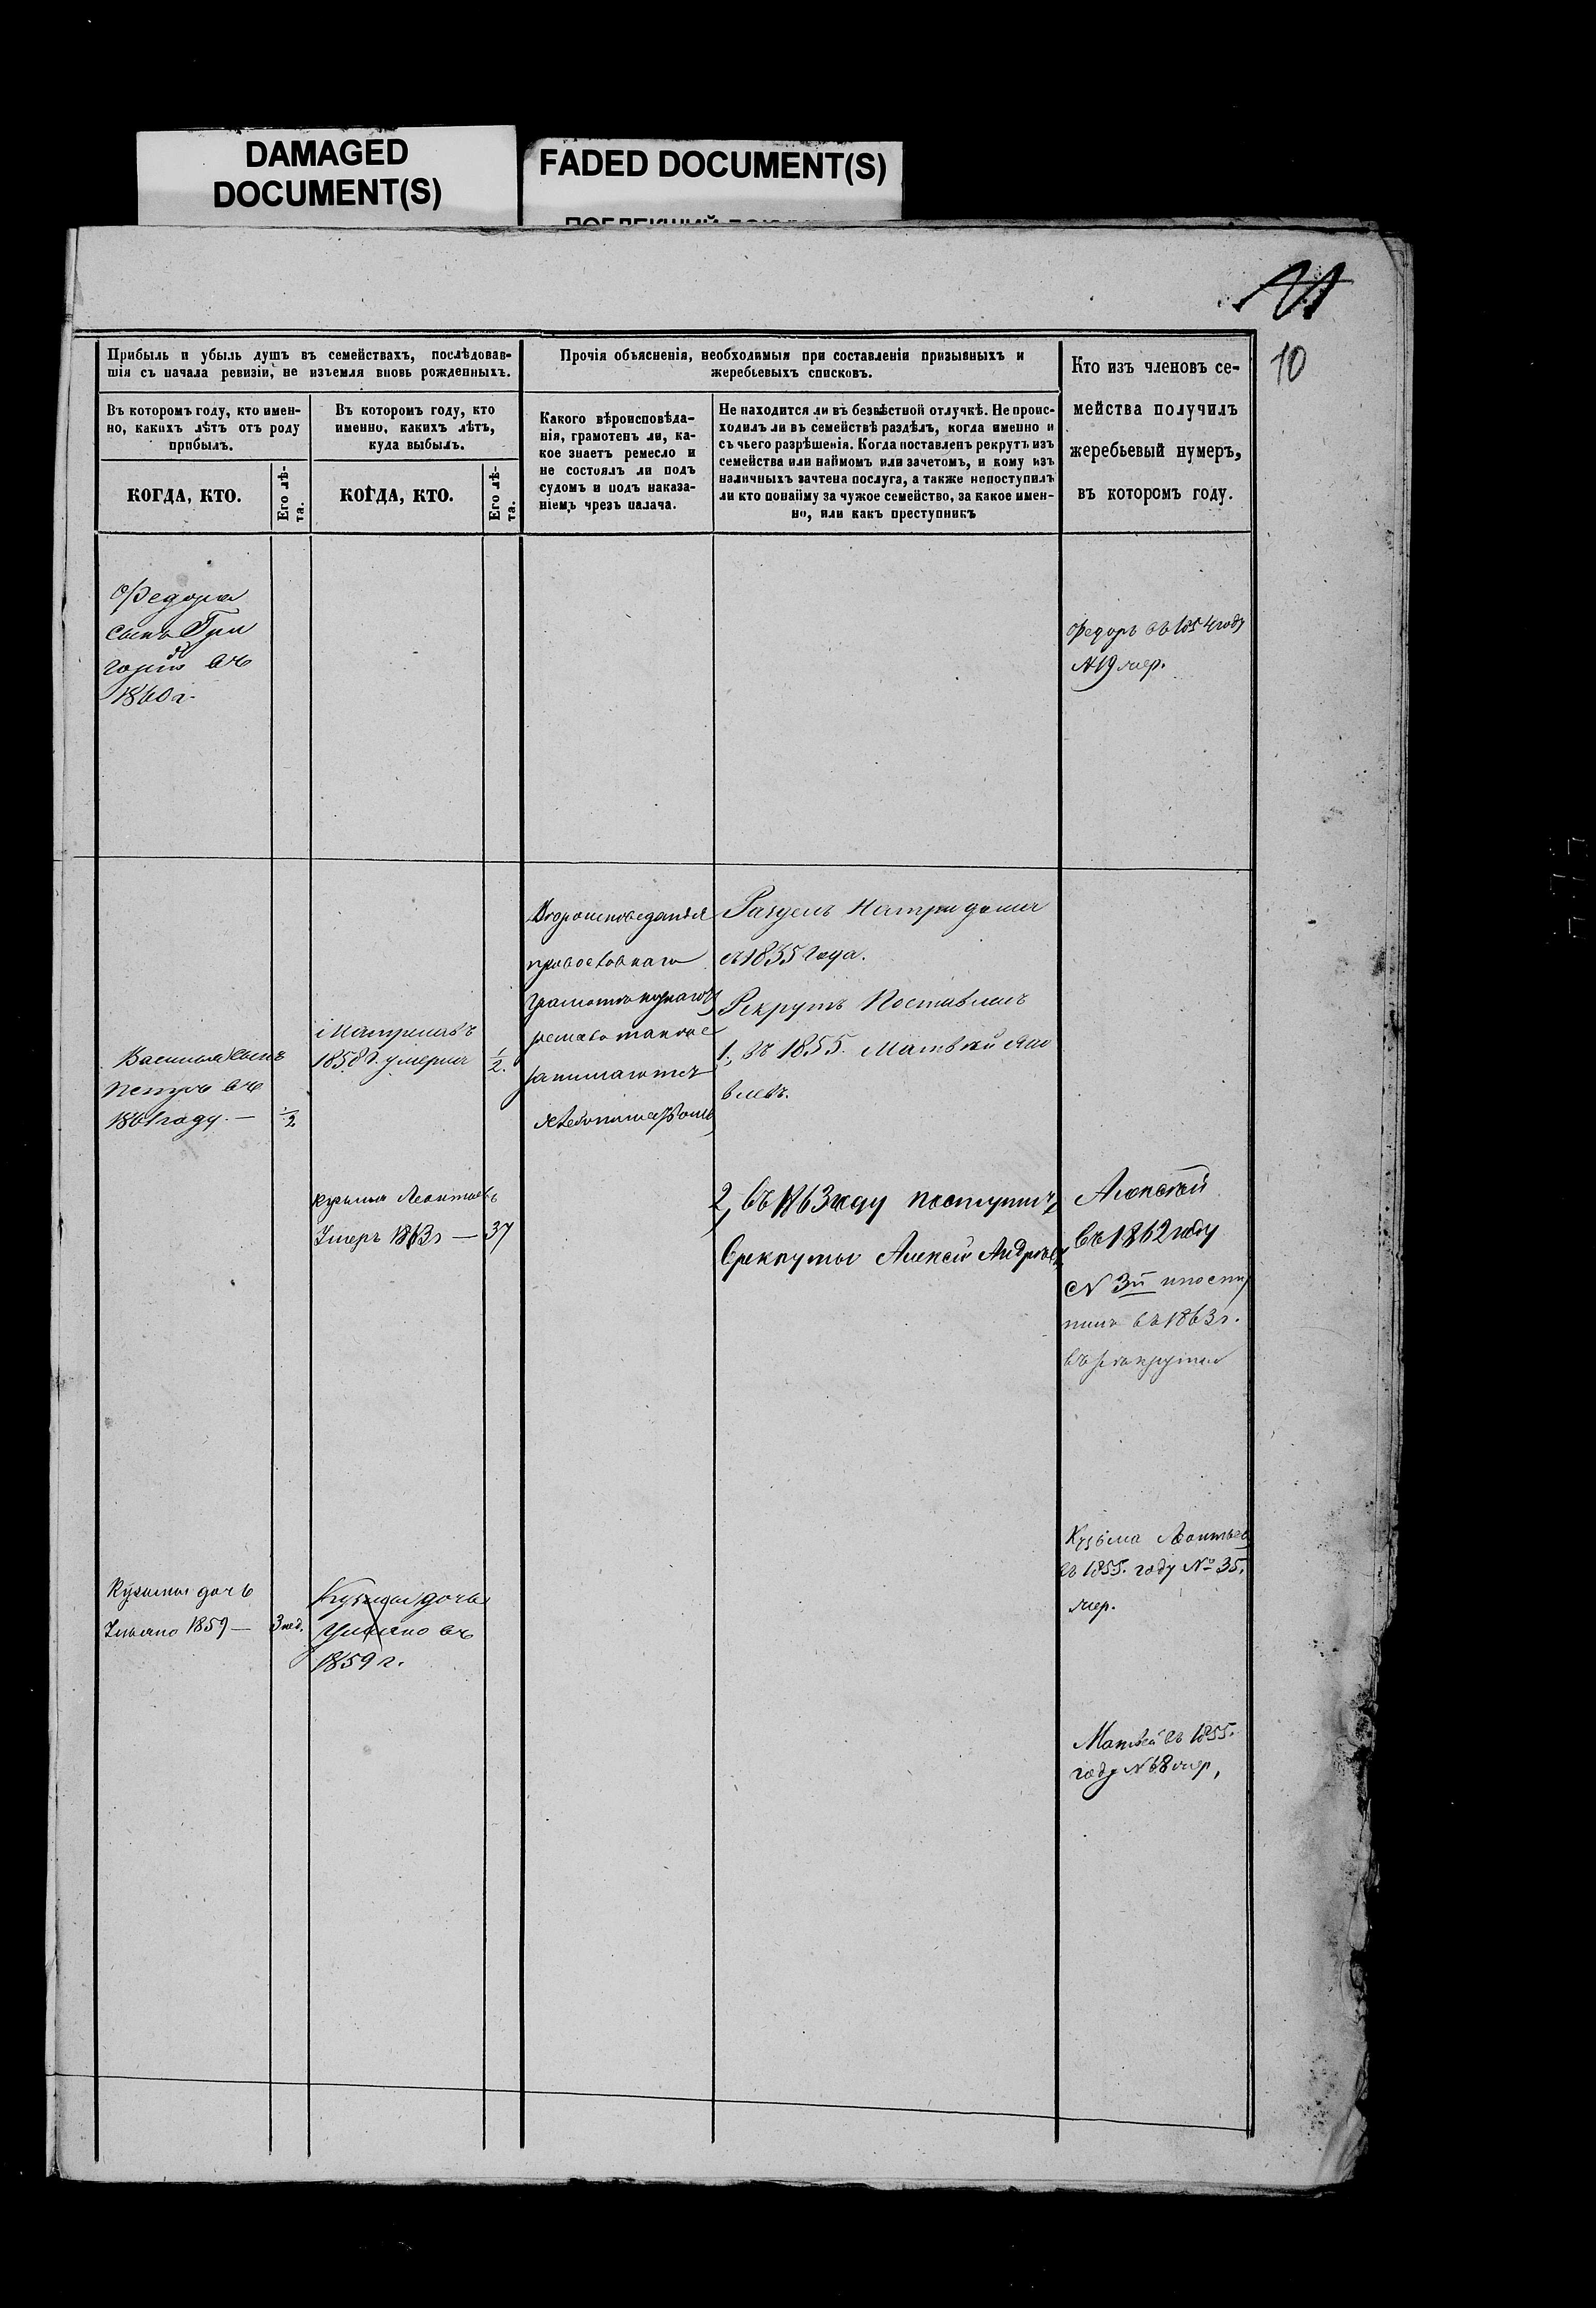 DAMAGED
DOCUMENT(S)
FADED DOCUMENT(S)
10
Прибыль и убыль душъ въ семействахъ, послѣдовав-
шія съ начала ревизіи, не изъемля вновь рожденныхъ.
Прочія объясненія, необходимыя при составленіи призывныхъ и
жеребьевыхъ списковъ.
Кто изъ членовъ се-
мейства получилъ
жеребьевый нумеръ,
въ которомъ году.
Въ которомъ году, кто имен-
но, какихъ лѣтъ отъ роду
прибылъ.
Въ которомъ году, кто
именно, какихъ лѣтъ,
куда выбылъ.
Какого вѣроисповѣда-
нія, грамотенъ ли, ка-
кое знаетъ ремесло и
не состоялъ ли подъ
судомъ и подъ наказа-
ніемъ чрезъ палача.
Не находится ли въ безвѣстной отлучкѣ. Не проис-
ходилъ ли въ семействѣ раздѣлъ, когда именно и
съ чьего разрѣшенія. Когда поставленъ рекрутъ изъ
семейства или наймомъ или зачетомъ, и кому изъ
наличныхъ зачтена послуга, а также непоступилъ
ли кто понайму за чужое семейство, за какое имен-
но, или какъ преступникъ
КОГДА, КТО.
Его лѣ-
та.
КОГДА, КТО.
Его лѣ-
та.
Федора
сынъ Гри
горій въ
1860 г.
Федоръ въ 1854 году
№ 19 жер.
Василья сынъ
Петръ въ
1861 году. — 1/2
1858 г. умерла 1/2.
Кузьма Леонтьевъ
Умеръ 1863 г — 37
православнаго
Раздѣлъ На три дома
съ 1855 года.
Рекрутъ Поставленъ
1, Въ 1855. Матвѣй Яко
влевъ.
2, Въ 1863 году поступилъ
Врекруты Алексѣй Андреевъ
Алексѣй
Въ 1862 году
№ 3й ипосту
пилъ въ 1863 г.
въ рекруты
Кузьма Леонтьевъ
въ 1855. году № 35.
жер.
Кузьмы дочь
Ульяна 1859 — 3 нед.
Кузьмы дочь
Ульяна въ
1859 г.
Матвей въ 1855.
году № 68 жер,